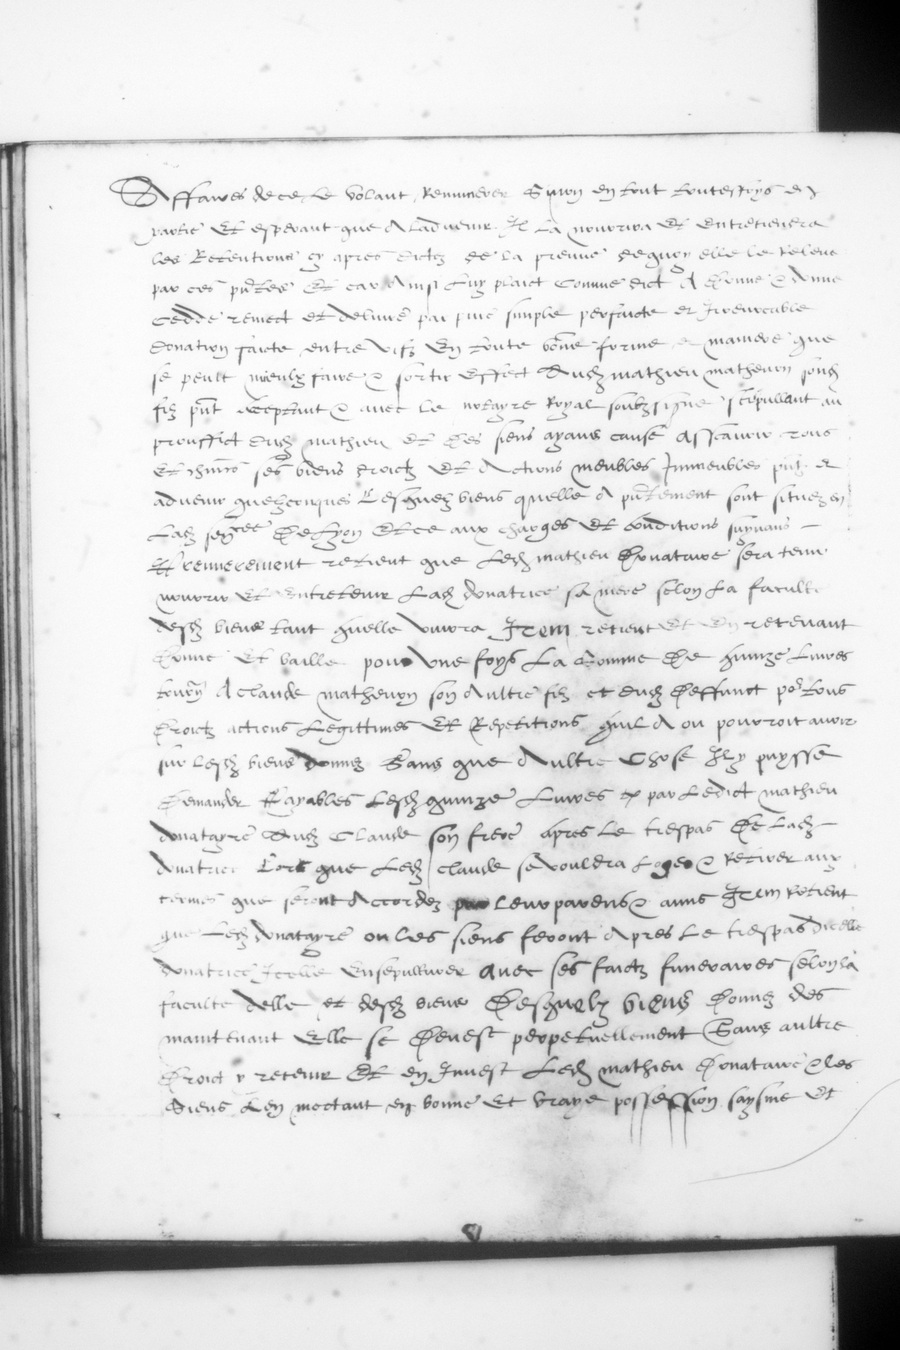 Affaires de ce, Le volant Remunerer Sinon en tout toutesfoys en
partie Et esperant que A Ladvenir Il La nourrira Et entretiendra
les Retentions cy apres dictes de la preuve dequoy elle le releve
par ces pntes Et car Ainsi Luy plaict Comme dict A donne & donne
Cedde remect et delivre par pure simple perfaicte et Irrevocable
donation faicte entre vifz En toute bonne forme et maniere que
se peult mieulx faire & sortir Effect Audz mathieu mathevon sondz
filz pnt acceptant & avec Le notayre Royal soubzsigne stipullant au
prouffict dudz mathieu et des siens ayans cause Asscavoir tous
Et chūns ses biens droictz Et Actions meubles Immeubles pntz et
advenir quelzconques Desquelz biens quelle A pntement sont situez en
Ladz senēcee De Lyon Et ce aux charges Et conditions suyvans
Et premierement retient que Ledz mathieu Donataire sera tenu
nourrir Et Entretenir Ladz donatrice sa mere selon La faculte
desdz biens tant quelle vivra Item retient Et En retenant
donne Et baille pour une foys La Somme De quinze Livres
tourn A Claude mathevon son Aultre filz et dudz Deffunct po tous
Droictz actions Legittimes Et Repetitions quil A ou pourroit avoir
sur Lesdz biens donnez Sans que Aultre Chose Il y puysse
Demander Payables Lesdz quinze Livres par Ledict mathieu
donatayre Audz Claude son frere apres Le trespas De Ladz
donatrice Lors que Ledz Claude se vouldra Loger & Retirer aux
termes que seront Accordez leur parens & amis Item Retient
que Ledz donatayre ou les siens feront Apres Le trespas dicelle
donatrice Icelle Ensepulturer avec ses faictz funeraires selon la
faculte delle et desdz biens Desquelz biens donnez des
maintenant Elle se Devest perpetuellement Sans aultre
Droict y retenir Et en Invest Ledz mathieu Donataire & les
Siens Len mectant en bonne Et vraye possession saysine Et